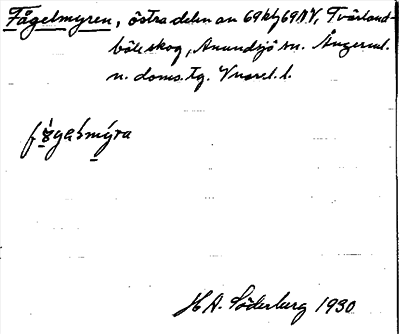 Fågelmyren, östra delen av 69kbj69NV, Tvärland-
böle skog, Anundsjö sn. Ångerml.
n. doms. tg. Vnorrl. l.
fågalsmýra
H A. Söderberg 1930